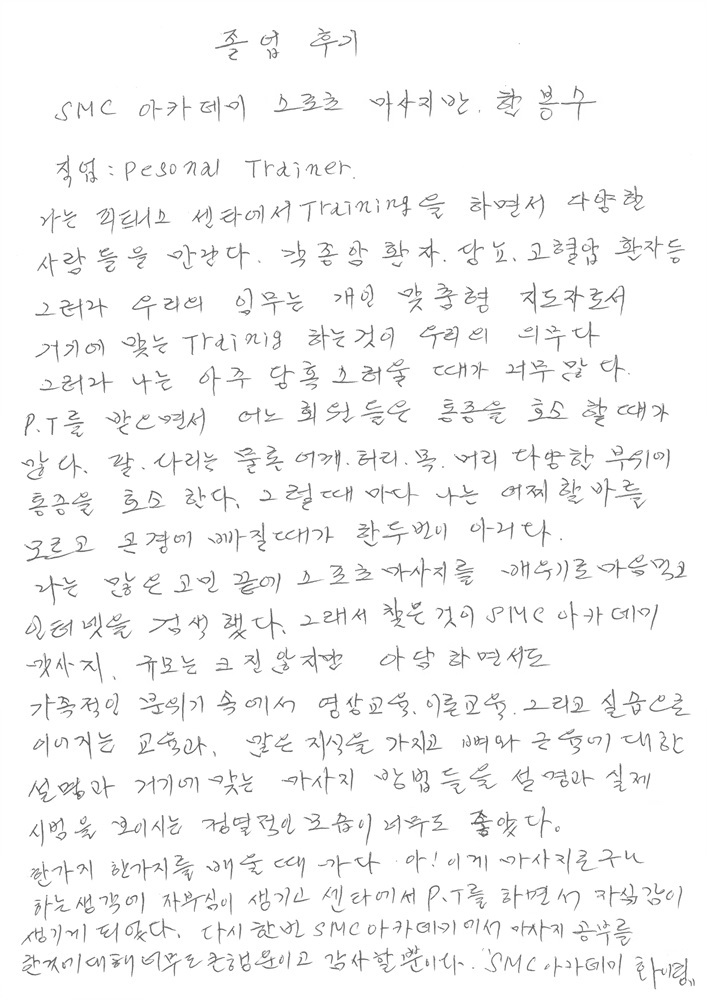 졸업 후기
SMC 아카데미 스포츠 마사지반. 한 봉수
직업: Pesonal Trainer.
나는 피트니스 센타에서 Training을 하면서 다양한
사람들을 만난다. 각종암 환자. 당뇨. 고혈압 환자등
그러나 우리의 임무는 개인 맞춤형 지도자로서
거기에 맞는 Trainig 하는것이 우리의 의무다
그러나 나는 아주 당혹스러울 때가 너무 많다.
P.T를 받으면서 어느 회원들은 통증을 호소 할때가
많다. 팔. 다리는 물론 어깨. 허리. 목. 머리 다양한 부위에
통증을 호소 한다. 그럴때 마다 나는 어찌할바를
모르고 곤경에 빠질때가 한두번이 아니다.
나는 많은 고민 끝에 스포츠마사지를 배우기로 마음먹고
인터넷을 검색 했다. 그래서 찾은것이 SMC 아카데미
맛사지. 규모는 크진 않지만 아담하면서도
가족적인 분위기 속에서 영상교육. 이론교육. 그리고 실습으로
이어지는 교육과. 많은 지식을 가지고 뼈와 근육에 대한
설명과 거기에 맞는 마사지 방법들을 설명과 실제
시범을 보이시는 정열적인 모습이 너무도 좋았다.
한가지 한가지를 배울 때 마다 아! 이게 마사지로구나
하는생각에 자부심이 생기고 센타에서 P.T를 하면서 자신감이
생기게 되었다. 다시한번 SMC아카데미에서 마사지 공부를
한것에대해 너무도 큰행운이고 감사할뿐이다. "SMC 아카데미 화이팅"